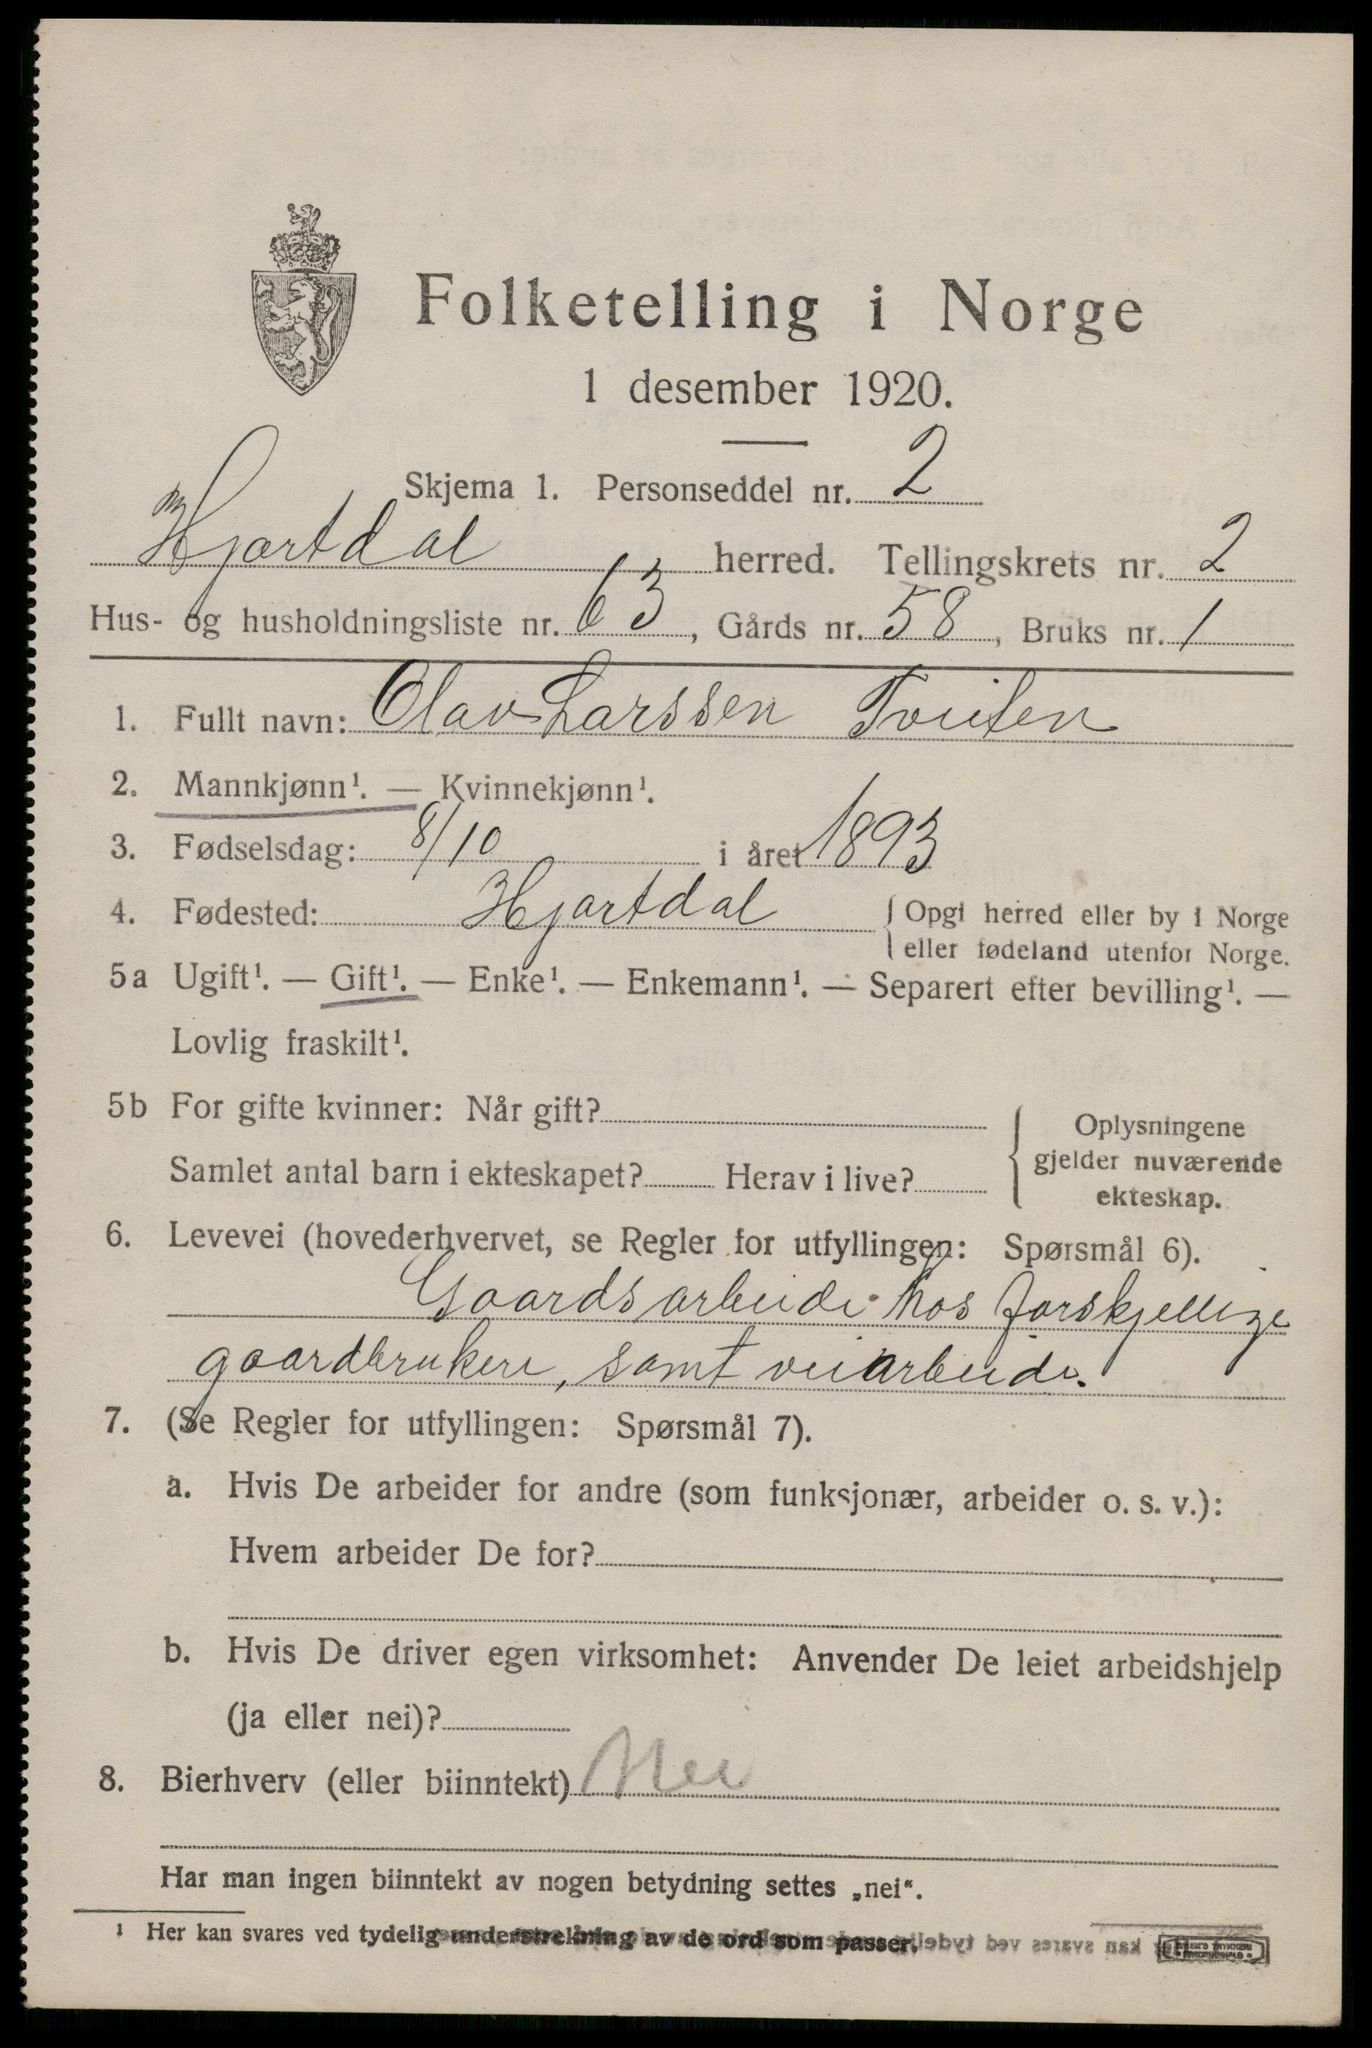 Folketelling i Norge
1 desember 1920.
Skjema 1. Personseddel nr. 2
Hjartdal herred. Tellingskrets nr. 2
Hus- og husholdningsliste nr. 63, Gårds nr. 58, Bruks nr. 1
1. Fullt navn: Olav Larssen Tveiten
2. Mannkjønn¹. — Kvinnekjønn¹.
3. Fødselsdag: 8/10 i året 1893
4. Fødested: Hjartdal { Opgi herred eller by i Norge
eller fødeland utenfor Norge.
5a Ugift¹. — Gift¹. — Enke¹. — Enkemann¹. — Separert efter bevilling¹. —
Lovlig fraskilt¹.
5b For gifte kvinner: Når gift?
Samlet antal barn i ekteskapet? Herav i live?
Oplysningene
gjelder nuværende
ekteskap.
6. Levevei (hovederhvervet, se Regler for utfyllingen: Spørsmål 6).
Gaardsarbeide hos forskjellige
gaardbrukere, samt veiarbeide.
7. (Se Regler for utfyllingen: Spørsmål 7).
a. Hvis De arbeider for andre (som funksjonær, arbeider o. s. v.):
Hvem arbeider De for?
b. Hvis De driver egen virksomhet: Anvender De leiet arbeidshjelp
(ja eller nei)?
8. Bierhverv (eller biinntekt) Nei
Har man ingen biinntekt av nogen betydning settes „nei“.
¹ Her kan svares ved tydelig understrekning av de ord som passer.